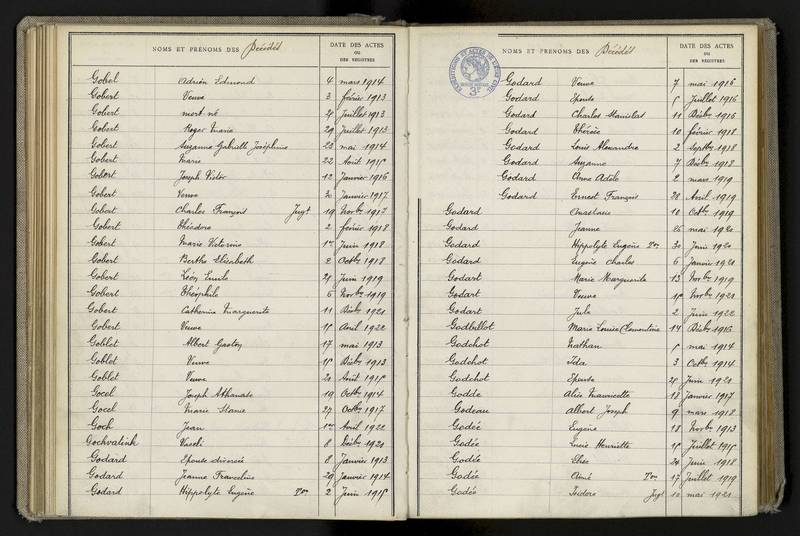 NOMS ET PRÉNOMS DES Décédés
DATE DES ACTES
OU
DES REGISTRES
Gobel Adrien Edmond 4 mars 1914
Gobert Veuve 3 février 1913
Gobert mort-né 25 Juillet 1913
Gobert Roger Marie 29 Juillet 1913
Gobert Suzanne Gabrielle Joséphine 23 mai 1914
Gobert Marie 22 Août 1915
Gobert Joseph Victor 12 Janvier 1916
Gobert Veuve Janvier 1917
Gobert Charles François Jugt 19 Novbre 1917
Gobert Théodore 2 février 1918
Gobert Marie Victorine 1er Juin 1918
Gobert Berthe Elisabeth 2 Octbre 1918
Gobert Léon Emile 25 Juin 1919
Gobert Théophile 6 Novbre 1919
Gobert Catherine Marguerite 11 Décbre 1921
Gobert Veuve 15 Avril 1922
Goblet Albert Gaston 17 mai 1913
Goblet Veuve 15 Décbre 1913
Goblet Veuve 21 Août 1915
Gocel Joseph Athanase 19 Octbre 1914
Gocel Marie Stanie 27 Octbre 1917
Goch Jean 1er Avril 1922
Gochvalink Vasili 8 Décbre 1920
Godard Epouse divorcée 8 Janvier 1913
Godard Jeanne Franceline 29 Janvier 1914
Godard Hippolyte Eugène Ton 2 Juin 1915
NOMS ET PRÉNOMS DES Décédés
DATE DES ACTES
OU
DES REGISTRES
Godard Veuve 7 mai 1916
Godard Epouse 5 Juillet 1916
Godard Charles Stanislas 11 Décbre 1916
Godard Thérèse 10 février 1918
Godard Louis Alexandre 2 Septbre 1918
Godard Suzanne 7 Décbre 1918
Godard Anne Adèle 2 mars 1919
Godard Ernest François 28 Avril 1919
Godard Anastasie 10 Octbre 1919
Godard Jeanne 25 mai 1920
Godard Hippolyte Eugène Ton 30 Juin 1920
Godard Eugène Charles 6 Janvier 1921
Godart Marie Marguerite 13 Novbre 1919
Godart Veuve 15 Novbre 1921
Godart Jule 2 Juin 1922
Godbillot Marie Louise Clémentine 14 Décbre 1916
Godchot Nathan 5 mai 1914
Godchot Ida 3 Octbre 1914
Godchot Epouse 25 Juin 1920
Godde Alice Mauricette 18 Janvier 1917
Godeau Albert Joseph 9 mars 1918
Godée Eugène 18 Novbre 1913
Godée Lucie Henriette 15 Juillet 1915
Godée Elise 24 Juin 1918
Godée Aimé Ton 17 Juillet 1919
Godée Isidore Jugt 10 mai 1921